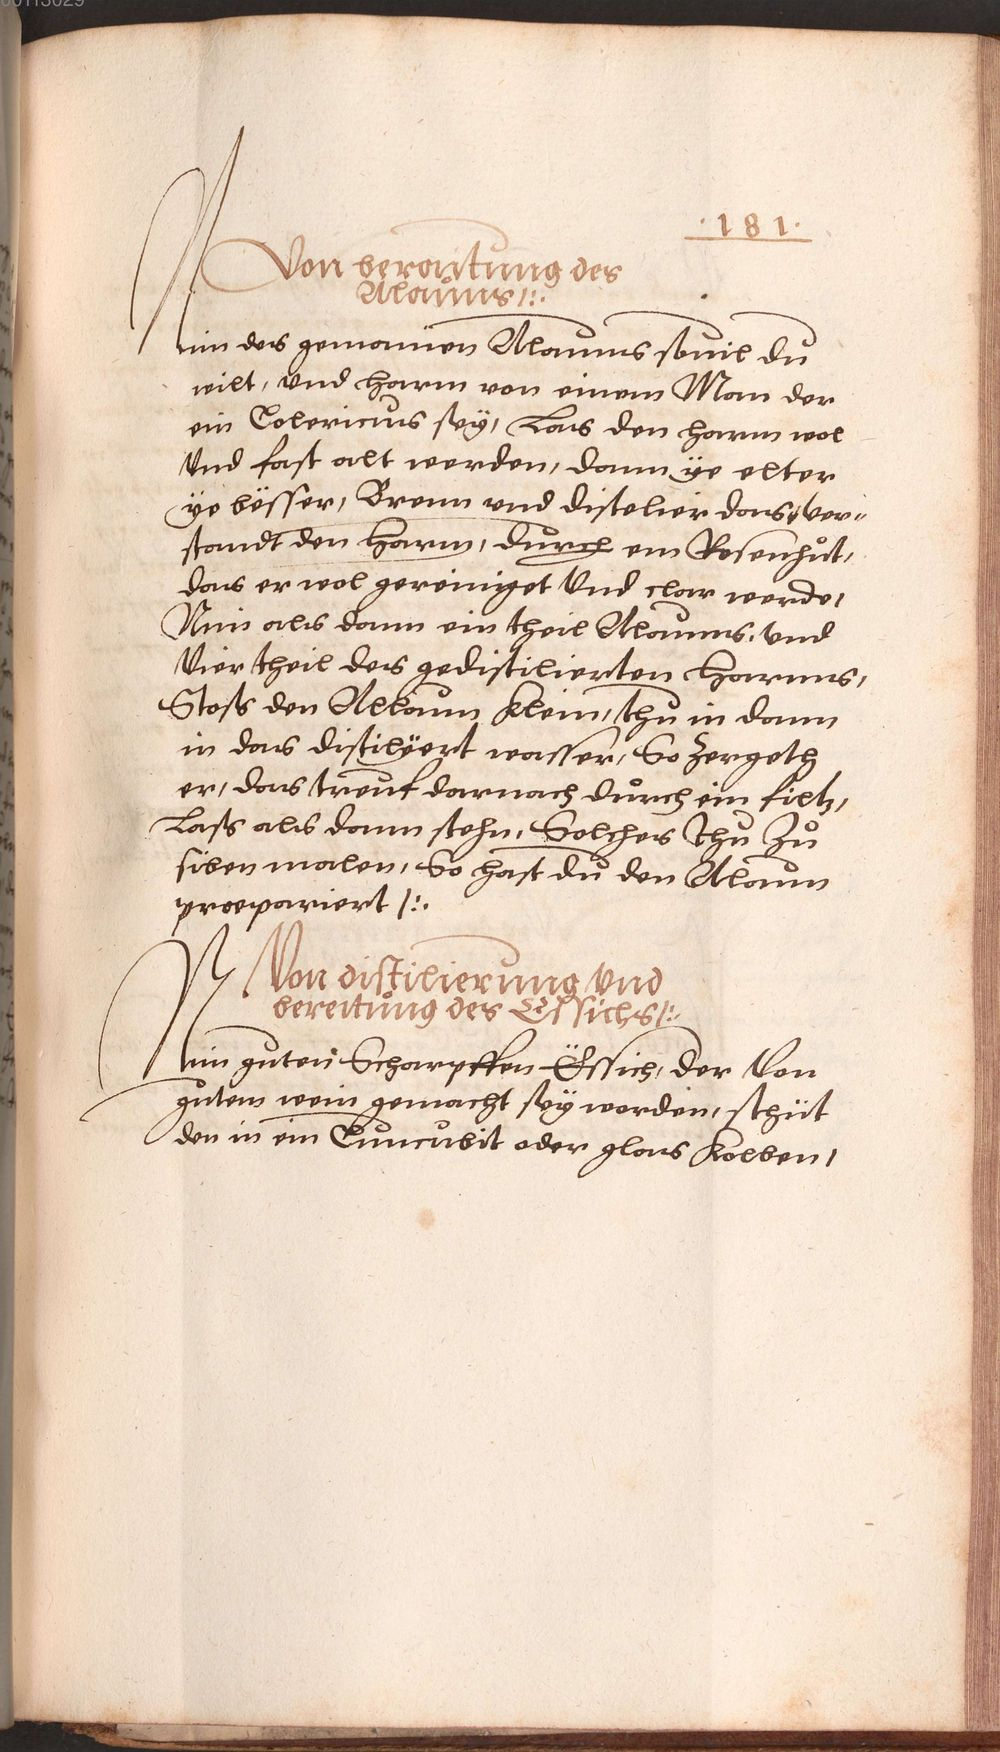 00113029
.181.
Von beraitung des
Alauns /:.
Nim des gemainen Alauns souil du
wilt, vnd harm von einem Man der
ein Colericus seÿ, Las den harm wol
Vnd fast alt werden, dann ÿe elter
ÿe bësser, Brenn vnd distelier das, ver-
standt den Harm, durch ein Rosenhůt,
das er wol gereiniget Vnd clar werde,
Nim als dann ein theil Alauns, vnd
Vier theil des gedistilierten Harms,
Stoß den Allaun klein, thu in dann
in das distilÿert wasser, So Zergeth
er, das treuf darnach důrch ein filtz,
Laß als dann stehn, Solches Thu Zů
siben malen, So hast du den Alaun
præpariert /:.
Von distilierung Vnd
bereitůng des Essichs /:.
Nim guten Scharpffen Essich, der Von
gůtem wein gemacht seÿ worden, schüt
den in ein Cuncubit oder glas kolben,